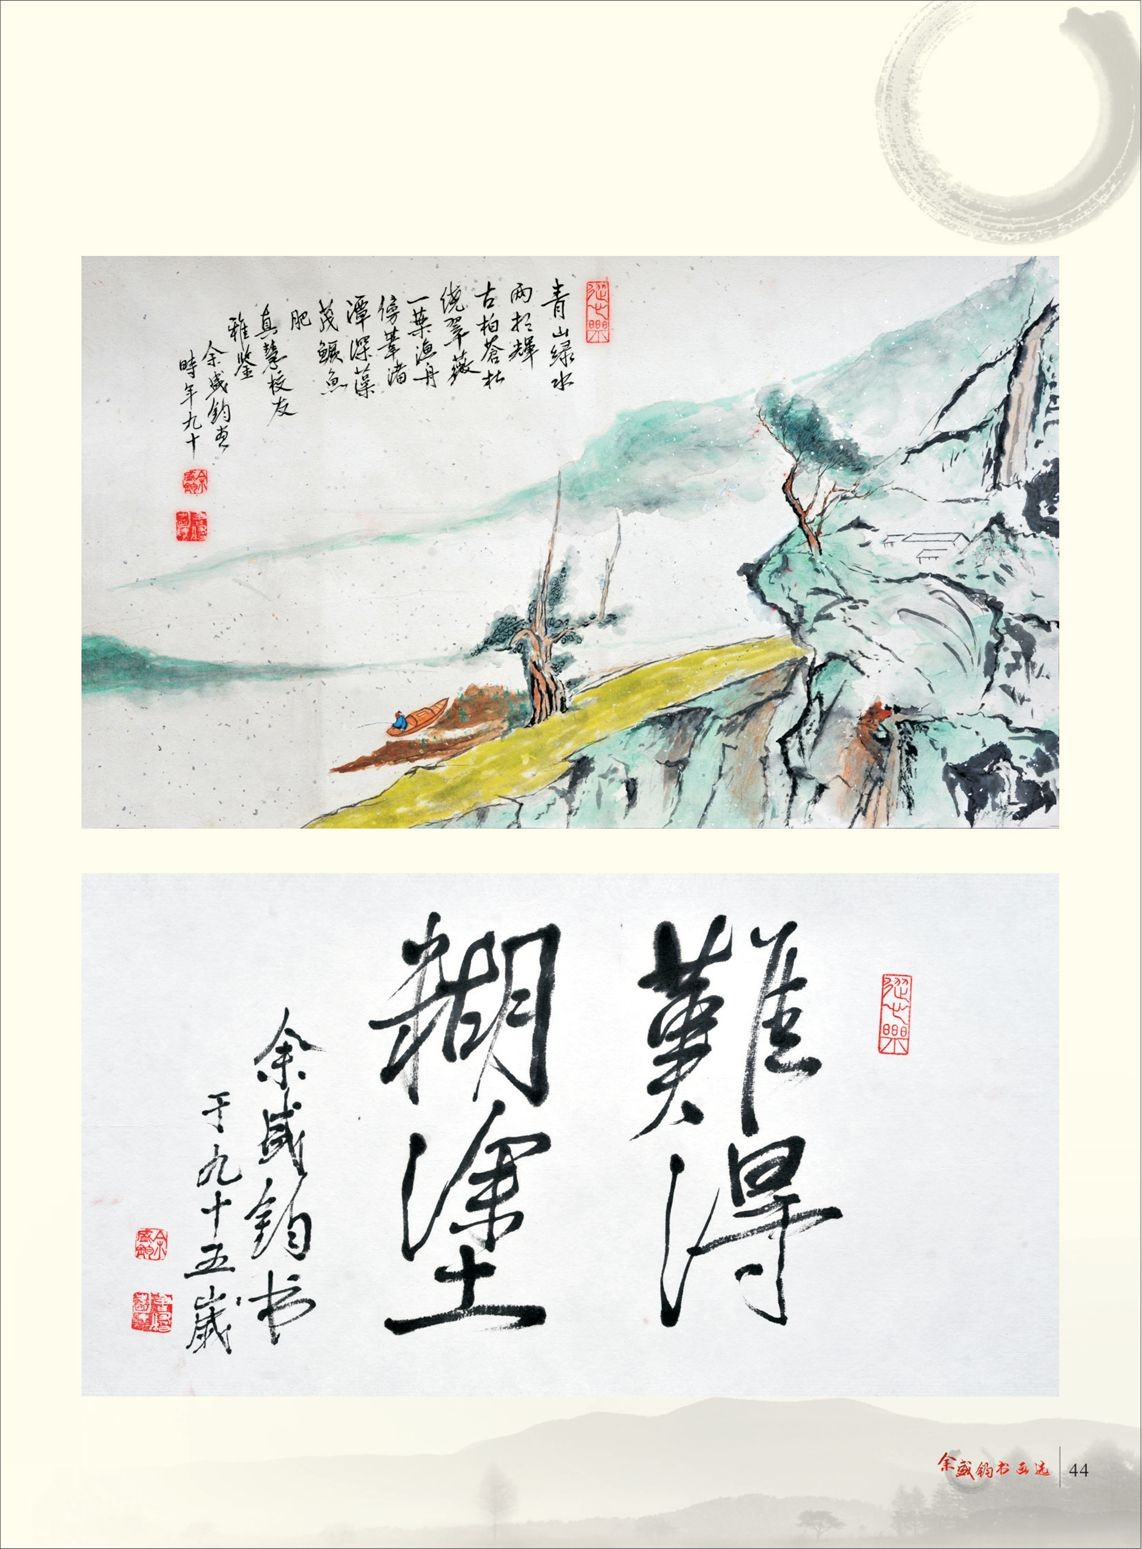 青山绿水
两相辉
古柏苍松
绕翠薇
一叶渔舟
傍苇渚
潭深藻
茂鳜鱼
肥
真慧校友
雅鉴
余盛钧画
時年九十
難得
糊塗
余盛钧书
于九十五歲
余盛钧书画选
44